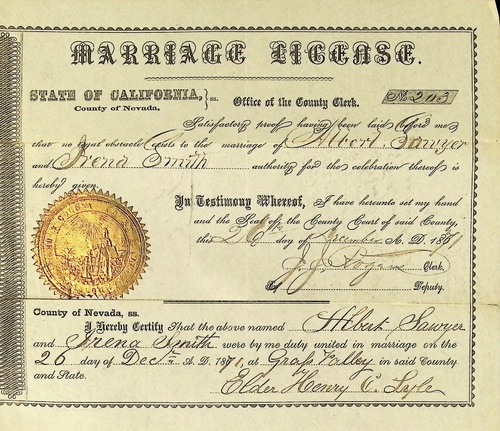 MARRIAGE LICENSE.
STATE OF CALIFORNIA, } ss.
County of Nevada,
Office of the County Clerk.
No 243
Satisfactory proof having been laid before me
that no legal obstacle exists to the marriage of Albert Sawyer
and Irena Smith authority for the celebration thereof is
hereby given.
In Testimony Whereof, I have hereunto set my hand
and the Seal of the County Court of said County,
this 26th day of December A. D. 1871
Clerk.
By Deputy.
County of Nevada, ss.
I Hereby Certify That the above named Albert Sawyer
and Irena Smith were by me duly united in marriage on the
26 day of Dec. A. D. 1871, at Grass Valley in said County
and State.
Elder Henry C. Lyle